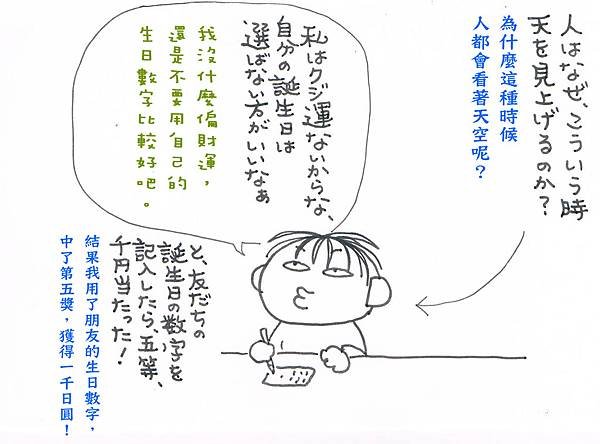 人はなぜ、こういう時
天を見上げるのか?
為什麼這種時候
人都會看著天空呢?
私はクジ運ないからな、
自分の誕生日は
選ばない方がいいなぁ
我沒什麼偏財運,
還是不要用自己的
生日數字比較好吧。
と、友だちの
誕生日の数字を
記入したら、五等、
千円当たった!
結果我用了朋友的生日數字,
中了第五獎,獲得一千日圓!